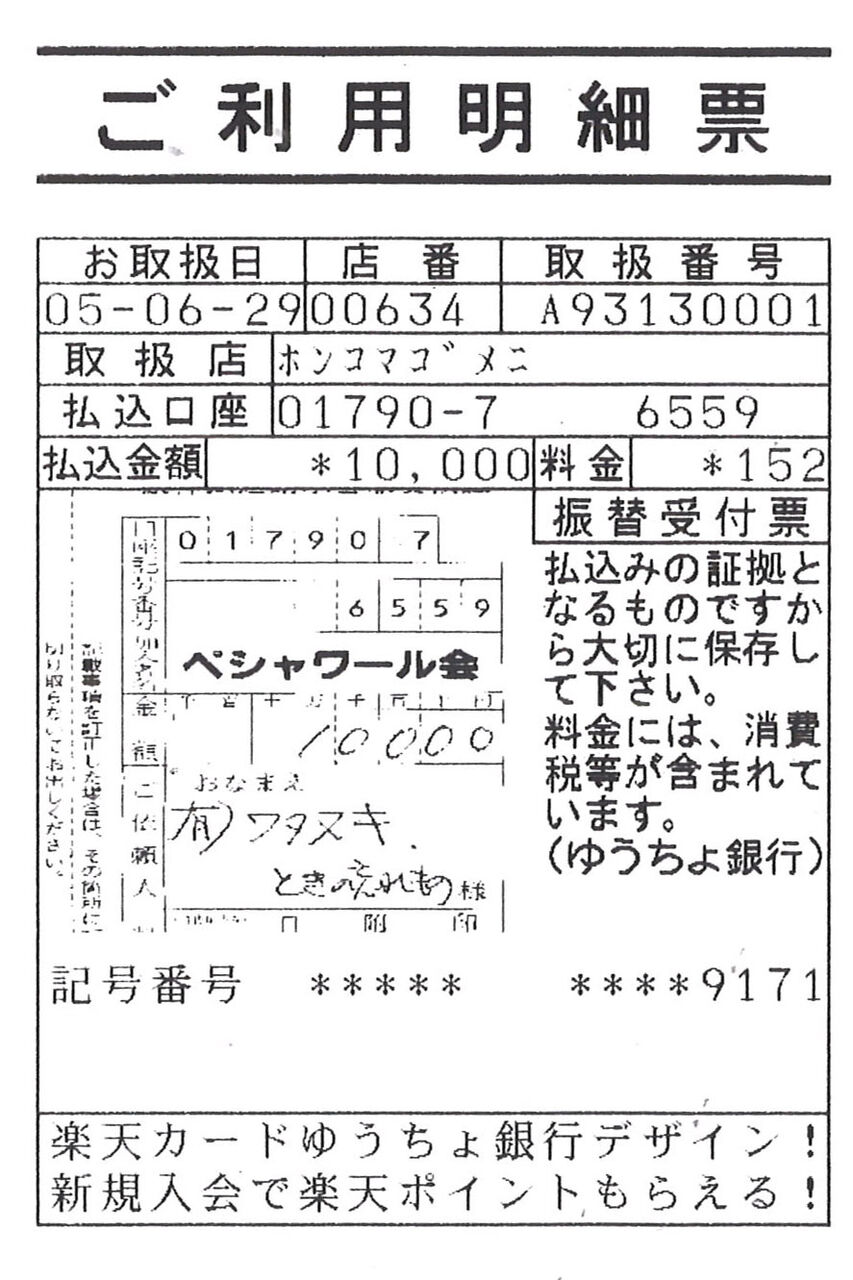 ご利用明細票
お取扱日 店番 取扱番号
05-06-29 00634 A93130001
取扱店 ホンコマゴメニ
払込口座 01790-7 6559
払込金額 *10,000 料金 *152
振替受付票
払込みの証拠と
なるものですか
ら大切に保存し
て下さい。
料金には、消費
税等が含まれて
います。
(ゆうちょ銀行)
口座記号番号
01790 7
6559
加入者名
ペシャワール会
金額
千百十万千百十円
10000
ご依頼人
おなまえ
(有)ワタヌキ.
ときの忘れもの 様
日附印
記載事項を訂正した場合は、その箇所に
切り取らないでお出しください。
記号番号 ***** ****9171
楽天カードゆうちょ銀行デザイン!
新規入会で楽天ポイントもらえる!